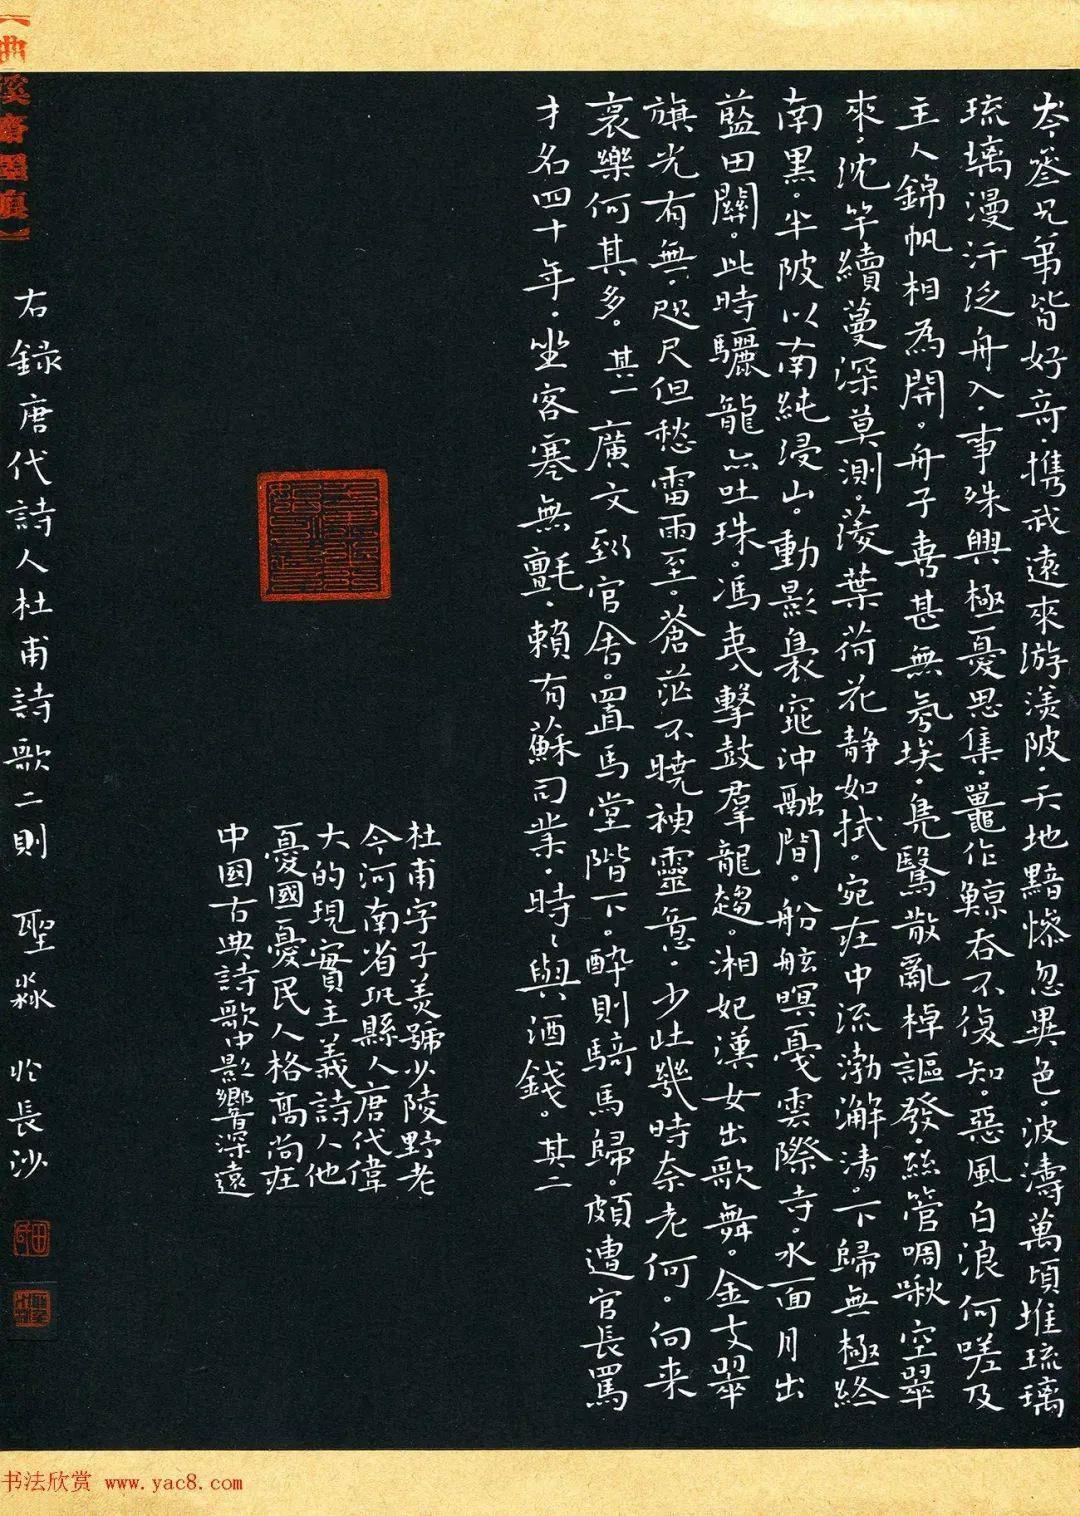 岑參兄弟皆好奇.携我遠來游渼陂.天地黯慘忽異色.波濤萬頃堆琉璃
琉璃漫汗泛舟入.事殊興極憂思集.鼉作鯨吞不復知.惡風白浪何嗟及
主人錦帆相為開。舟子喜甚無氛埃.鳧鷖散亂棹謳發.絲管啁啾空翠
來。沈竿續蔓深莫測。菱葉荷花静如拭。宛在中流渤澥清。下歸無極終
南黑。半陂以南純浸山。動影裊窕沖融間。船舷暝戛雲際寺。水面月出
藍田關。此時驪龍亦吐珠。馮夷擊鼓羣龍趨。湘妃漢女出歌舞。金支翠
旗光有無.咫尺但愁雷雨至。蒼茫不曉神靈意.少壯幾時奈老何。向来
哀樂何其多。其一 廣文到官舍。置馬堂階下。醉則騎馬歸。頗遭官長罵
才名四十年.坐客寒無氈.賴有蘇司業.時時與酒錢。其二
杜甫字子美號少陵野老
今河南省巩縣人唐代偉
大的現實主義詩人他
憂國憂民人格高尚在
中國古典詩歌中影響深遠
右録唐代詩人杜甫詩歌二則 聖淼 於長沙
【曲溪齋墨痕】
书法欣赏 www.yac8.com